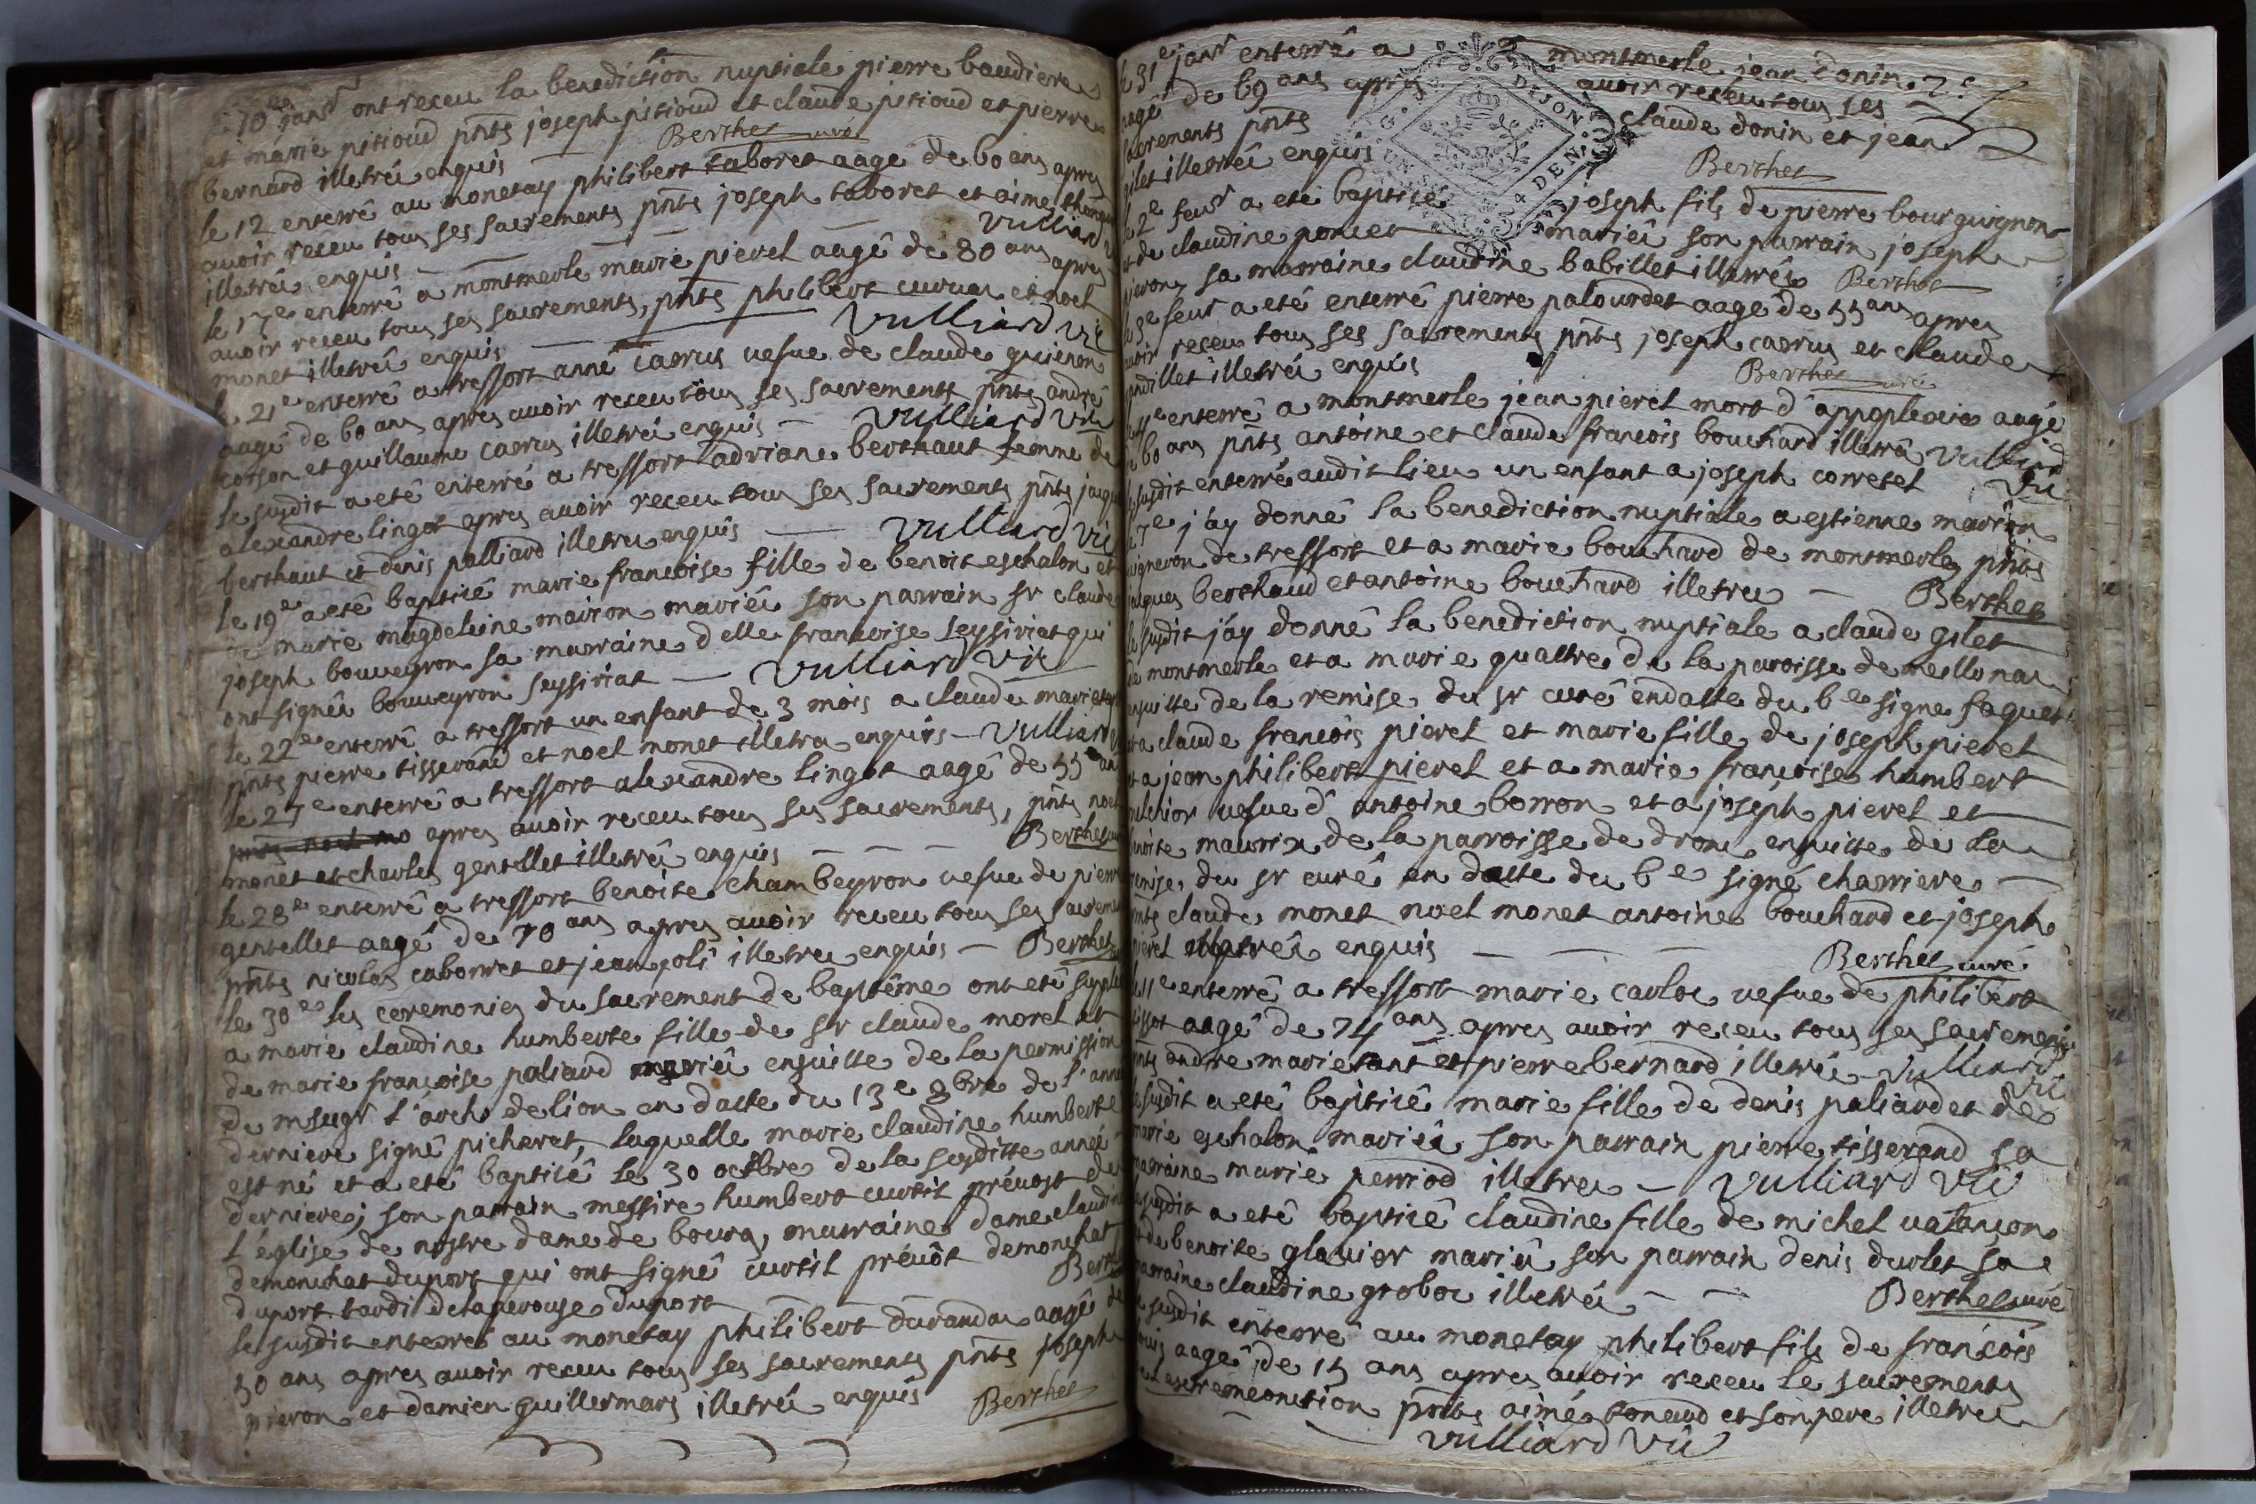 10e janr ont receu la benediction nuptiale pierre baudiere
et marie pitioud pnts joseph pitioud et claude pitioud et pierre
bernard illetréi enquis Berthet curé
le 12 enterré au monetay philibert taboret aagé de 60 ans apres
avoir receu tous ses sacrements pnts joseph taboret et aimé
illetréi enquis Vulliard
le 17e enterré a montmerle marie pierel aagé de 80 ans apres
avoir receu tous ses sacrements, pnts philibert et noel
monet illetréi enquis Vulliard Vic
le 21e enterré a tressort anne carrus vefue de claude guienon
aagé de 60 ans apres avoir receu tous ses sacrements pnts andré
corson et guillaume carrus illetréi enquis Vulliard Vic
le susdit a eté enterré a tressort adriane berthaut femme de
alexandre lingot apres avoir receu tous ses sacrements pnts jaque
berthaut et denis palliard illetréi enquis Vulliard Vic
le 19e a eté baptisé marie françoise fille de benoit eschalon et
de marie magdeleine mairon mariéi son parrain sr claude
joseph bouveyron sa marraine delle françoise seyssiriat qui
ont signéi bouveyron seyssiriat Vulliard Vic
le 22e enterré a tressort un enfant de 3 mois a claude
pnts pierre tisserand et noel monet illetréi enquis Vulliard
le 27e enterré a tressort alexandre lingot aagé de 55 ans
apres avoir receu tous ses sacrements, pnts noel
monet et charles gentellet illetréi enquis Berthet
le 28e enterré a tressort benoite chambeyron vefue de pierre
gentellet aagé de 70 ans apres avoir receu tous ses sacrements
pnts nicolas caborret et jean poli illetréi enquis Berthet
le 30e les ceremonies du sacrement de baptême ont eté
a marie claudine humberte fille de sr claude morel et
de marie françoise paliard mariéi ensuitte de la permission
de msegr l'arch de lion en datte du 13e 9bre de l'année
derniere signé picheret, laquelle marie claudine humberte
est né et a eté baptisé le 30 octbre de la susditte année
derniere, son parrain messire humbert curtil prévost de
l'église de nostre dame de bourg, marraine dame claudine
demonchat duport qui ont signé curtil prévôt demonchat
duport tardi delaperouse duport Berthet
le susdit enterré au monetay philibert durandar aagé de
50 ans apres avoir receu tous ses sacrements pnts joseph
pieron et damien guillermars illetréi enquis Berthet
31e janr enterré a montmerle jean donin
aagé de 69 ans apres avoir receu tous ses
sacrements pnts claude donin et jean
gilet illetréi enquis Berthet
le 2e feur a eté baptisé joseph fils de pierre bourguignon
et de claudine poncet mariéi son parrain joseph
pieron, sa marraine claudine babillet illetréi Berthet
le 3e feur a eté enterré pierre palourdet aagé de 55 ans apres
avoir receu tous ses sacrements pnts joseph carrus et claude
illetréi enquis Berthet curé
enterré a montmerle jean pierel mort d'appoplexie aagé
de 60 ans pnts antoine et claude françois bouchard illetréi Vulliard
le susdit enterré audit lieu un enfant a joseph corretel Vic
le 7e j'ay donné la benediction nuptiale a estienne marion
vigneron de tressort et a marie bouchard de montmerle, pnts
jacques berthaud et antoine bouchard illetréi Berthet
le susdit j'ay donné la benediction nuptiale a claude gilet
de montmerle et a marie quattre de la paroisse de meillonas
ensuitte de la remise du sr curé en datte du 6e signé faguet
et a claude françois pierel et marie fille de joseph pierel
et a jean philibert pierel et a marie françoise humbert
melchior vefue d'antoine borron et a joseph pierel et
benoite maurix de la parroisse de drom, ensuitte de la
remise du sr curé en datte du 6e signé charriere
pnts claude monet noel monet antoine bouchard et joseph
pierel illetréi enquis Berthet curé
le 11e enterré a tressort marie carloc vefue de philibert
aagé de 74 ans apres avoir receu tous ses sacrements
pnts andre marietant et pierre bernard illetréi Vulliard Vic
le susdit a eté baptisé marie fille de denis paliard et de
marie eschalon mariéi son parrain pierre tisserand sa
marraine marie perriod illetréi Vulliard Vic
le susdit a eté baptisé claudine fille de michel valançon
et de benoite glavier mariéi son parrain denis durlet sa
marraine claudine groboc illetréi Berthet curé
le susdit enterré au monetay philibert fils de françois
aagé de 15 ans apres avoir receu le sacrements
de l'extremeonction pnts aimé tonaud et son pere illetréi
Vulliard Vic